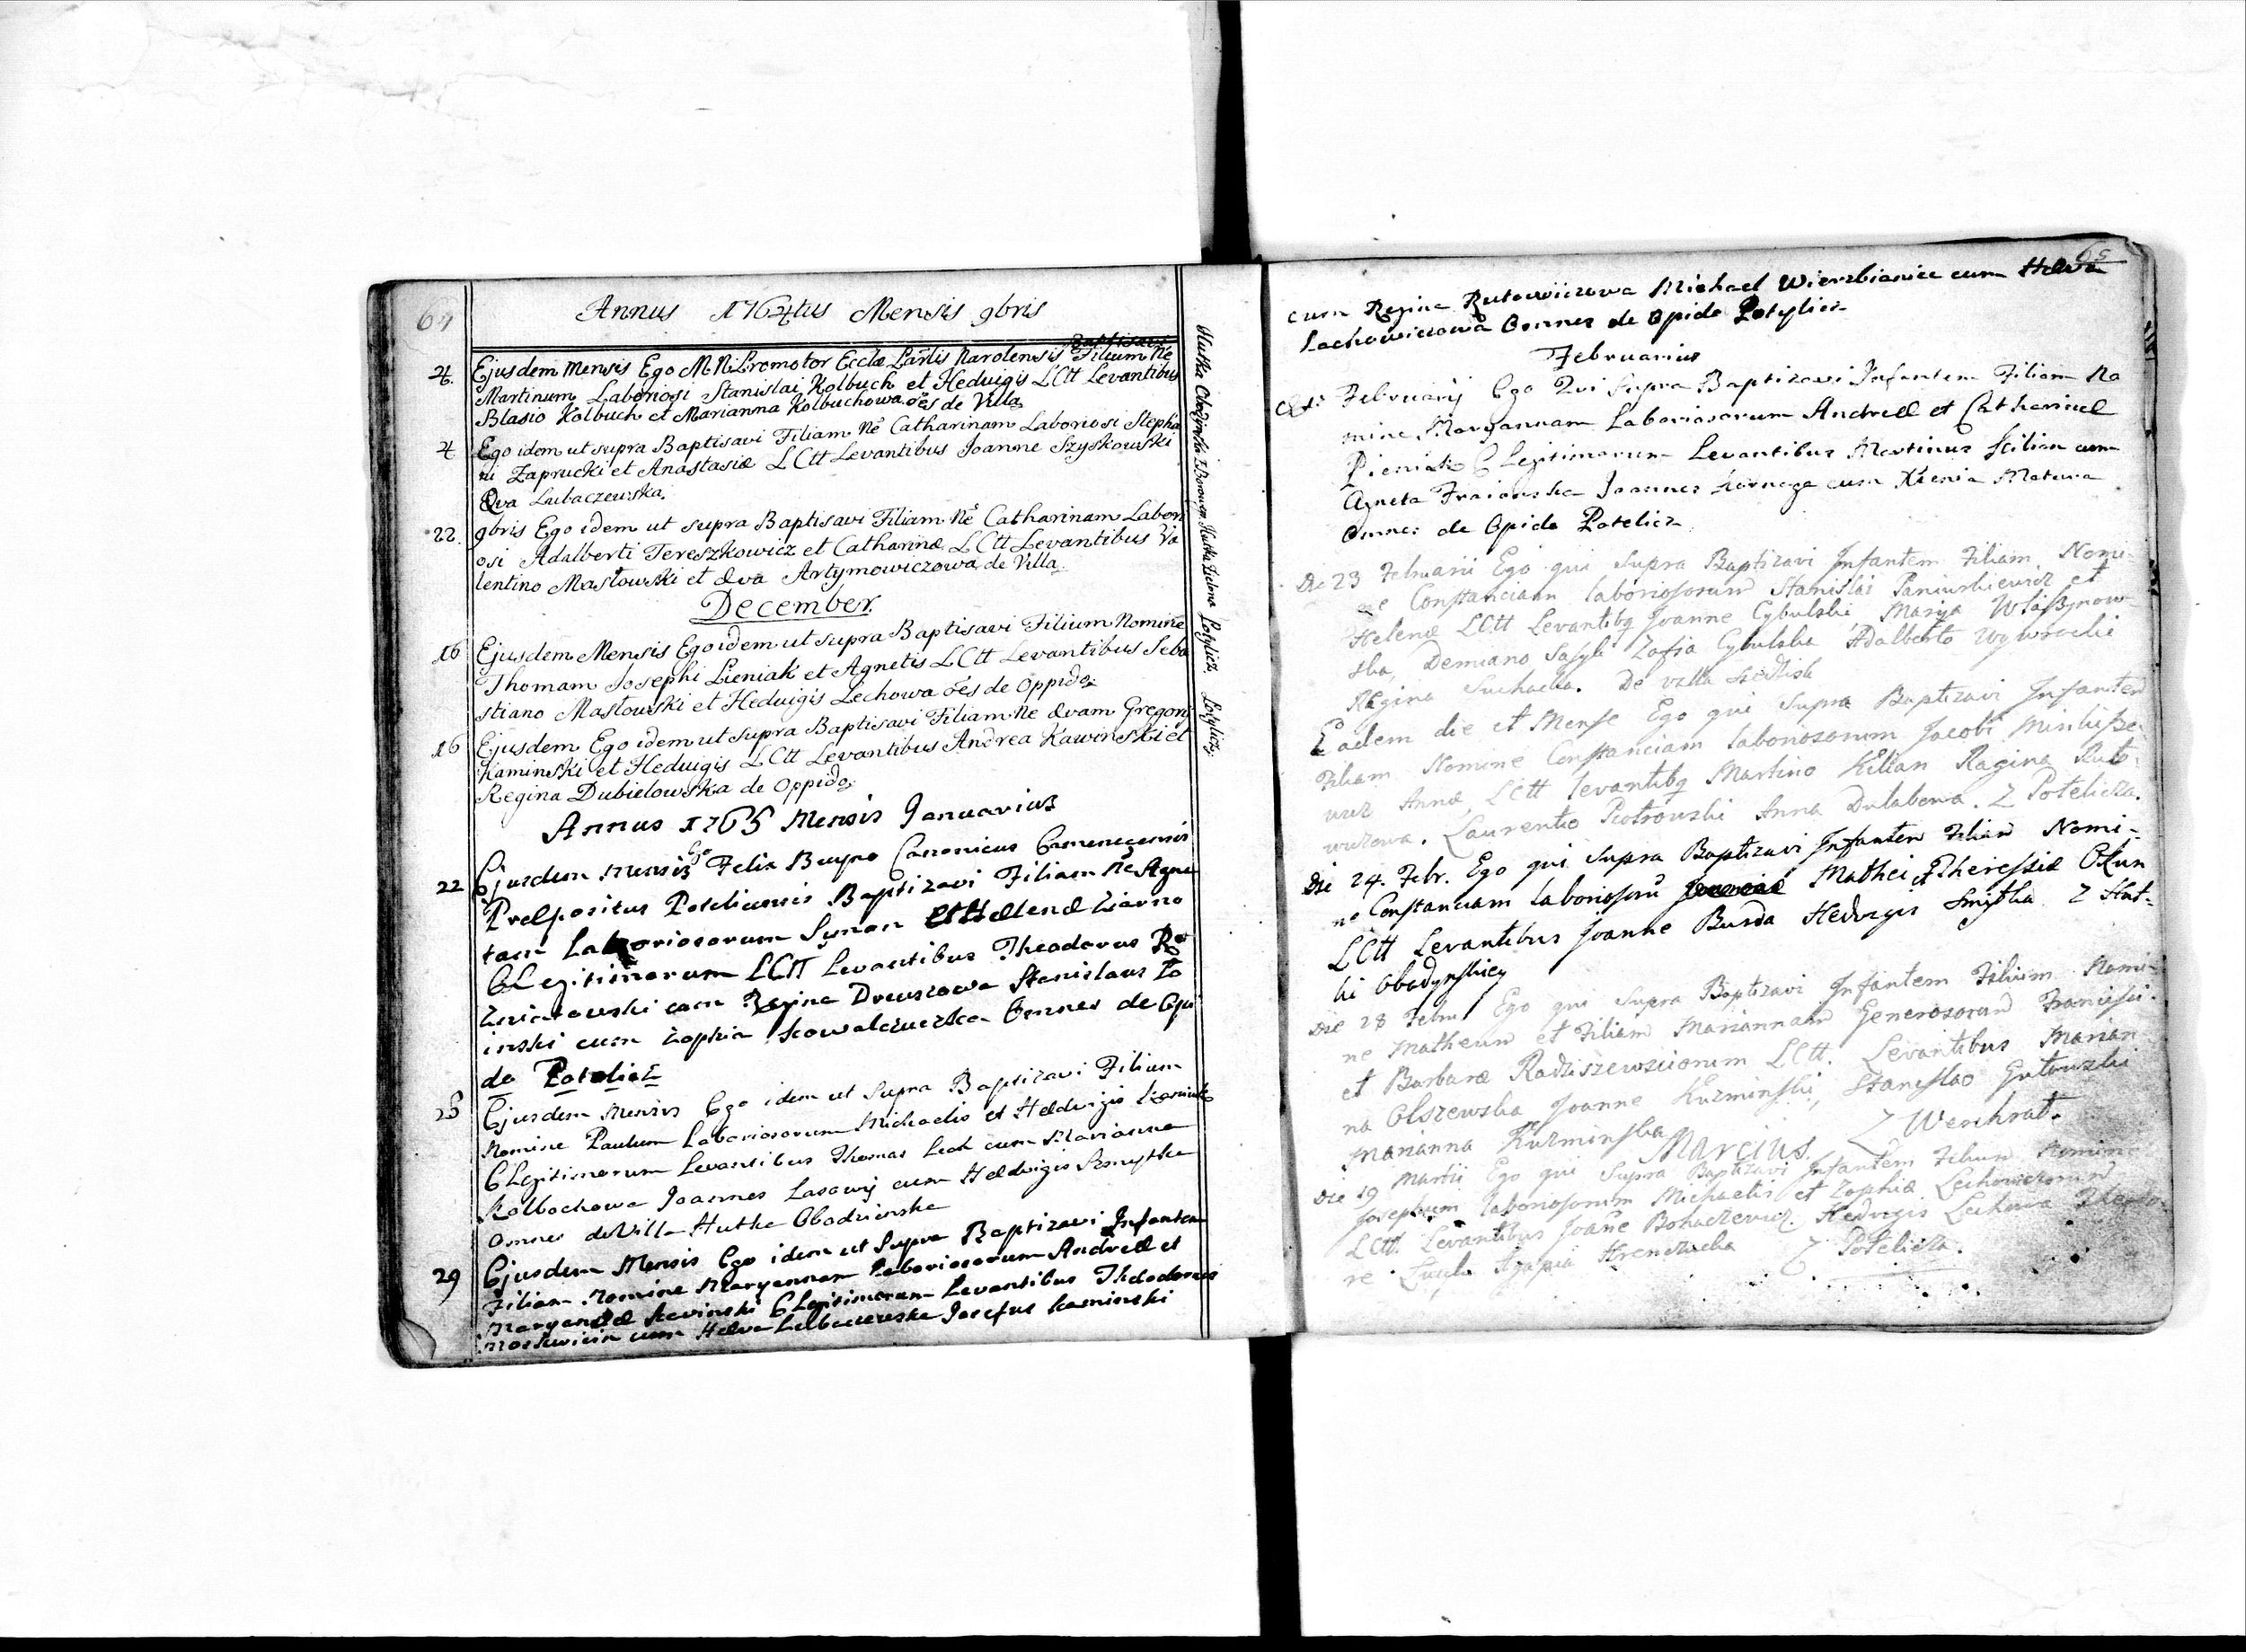 64
Annus 1764tus Mensis 9bris
Baptisavi
4. Ejusdem Mensis Ego M N Promotor Eccłæ Parlis Narolensis Filium Nē
Martinum Laboriosi Stanislai Kolbuch et Heduigis LCtt Levantibus
Blasio Kolbuch et Marianna Kolbuchowa oēs de Villa
4 Ego idem ut supra Baptisavi Filiam Nē Catharinam Laboriosi Stepha
ni Zaprucki et Anastasiæ LCtt Levantibus Joanne Szyskowski
Eva Lubaczewska.
22. 9bris Ego idem ut supra Baptisavi Filiam Nē Catharinam Labori
osi Adalberti Tereszkowicz et Catharinæ LCtt Levantibus Va
lentino Masłowski et Eva Artymowiczowa de Villa.
December.
16 Ejusdem Mensis Ego idem ut supra Baptisavi Filium Nomine
Thomam Josephi Pieniak et Agnetis LCtt Levantibus Seba
stiano Masłowski et Heduigis Lechowa oēs de Oppido
16 Ejusdem Ego idem ut supra Baptisavi Filiam Ne Evam Gregorij
Kaminski et Heduigis LCtt Levantibus Andrea Kawinski et
Regina Dubielowska de Oppido
Annus 1765 Mensis Januarius
22 Ejusdem Mensis Ego Felix Buyno Canonicus Camenecensis
Præpositus Potelicensis Baptizavi Filiam Nē Agne
tam Laboriosorum Symon et Hellenæ Ziarno
CLegitimorum LCtt Levantibus Theodorus
cum Regina Drewszowa Stanislaus
inski cum Zophia Kowalczuczka Omnes de Opi
do Potelicz
28 Ejusdem Mensis Ego idem ut Supra Baptizavi Filium
Nomine Paulum Laboriosorum Michaelis et Heldwigis
CLegitimorum Levantibus Thomas Lech cum Marianna
Kolbochowa Joannes Lasowij cum Heldwigis Szmytka
Omnes de Villa Hutka Obedzinska
29 Ejusdem Mensis Ego idem ut Supra Baptizavi Infantem
Filiam Nomine Maryannam Laboriosorum Andreæ et
Maryannæ Kavinski CLegitimorum Levantibus Thedodorus
Moskwicin cum Helva Lubaczewska Josefus Kaminski
Hutka Obedzinska Hutka Zielona Potylicz. Potylicz.
65
cum Regina Rutowiczowa Michael Wierzbianice cum Helva
Lachowiczowa Omnes de Opido Potylicz
Februarius
Februarij Ego Qui Supra Baptizavi Infantem Filiam No
mine Maryannam Laboriosorum Andreæ et Catherinæ
Pieniak CLegitimorum Levantibus Martinus Kilian cum
Agneta Fraiowska Joannes Kornaga cum Xienia Matura
Omnes de Opido Potelicz
Die 23 Februarii Ego qui Supra Baptizavi Infantem Filiam Nomi-
ne Constanciam laboriosorum Stanislai Paniuskiewicz et
Helenæ LCtt Levantibq Joanne Cybulski Marya Własynow-
ska, Demiano Sasyk Zofia Cybulska Adalberto Wywrocki
Regina Suchacka. De villa Siedlisk
Eadem die et Mense Ego qui Supra Baptizavi Infantem
Filiam Nomine Constanciam laboriosorum Jacobi
wicz Annæ, LCtt levantibq Martino Kilian Ragina Ruto-
wiczowa. Laurentio Piotrowski Anna Dulabowa. Z Potelicza.
Die 24. Febr. Ego qui Supra Baptizavi Infantem Filiam Nomi-
ne Constanciam laboriosorū Mathei et Theressiæ Okun
LCtt Levantibus Joanne Burda Hedvigis Smytka Z Hut-
ki Obedynskiey
Die 28 Febru Ego qui Supra Baptizavi Infantem Filium Nomi-
ne Matheum et Filiam Mariannam Generosorum Francisci
et Barbaræ Radziszewsciorum LCtt. Levantibus Marian
na Olszewska Joanne Kuzminski, Stanislao Gutowski
Marianna Kuzminska Z Werchrat.
Marcius.
Die 19 Martii Ego qui Supra Baptizavi Infantem Filium Nomine
Josephum laboriosorum Michaelis et Zophiæ Lechowiczorum
LCtt. Levantibus Joane Bohaczewicz. Hedvigis Lechowa Theodo-
re Agapia Z Potelicza.